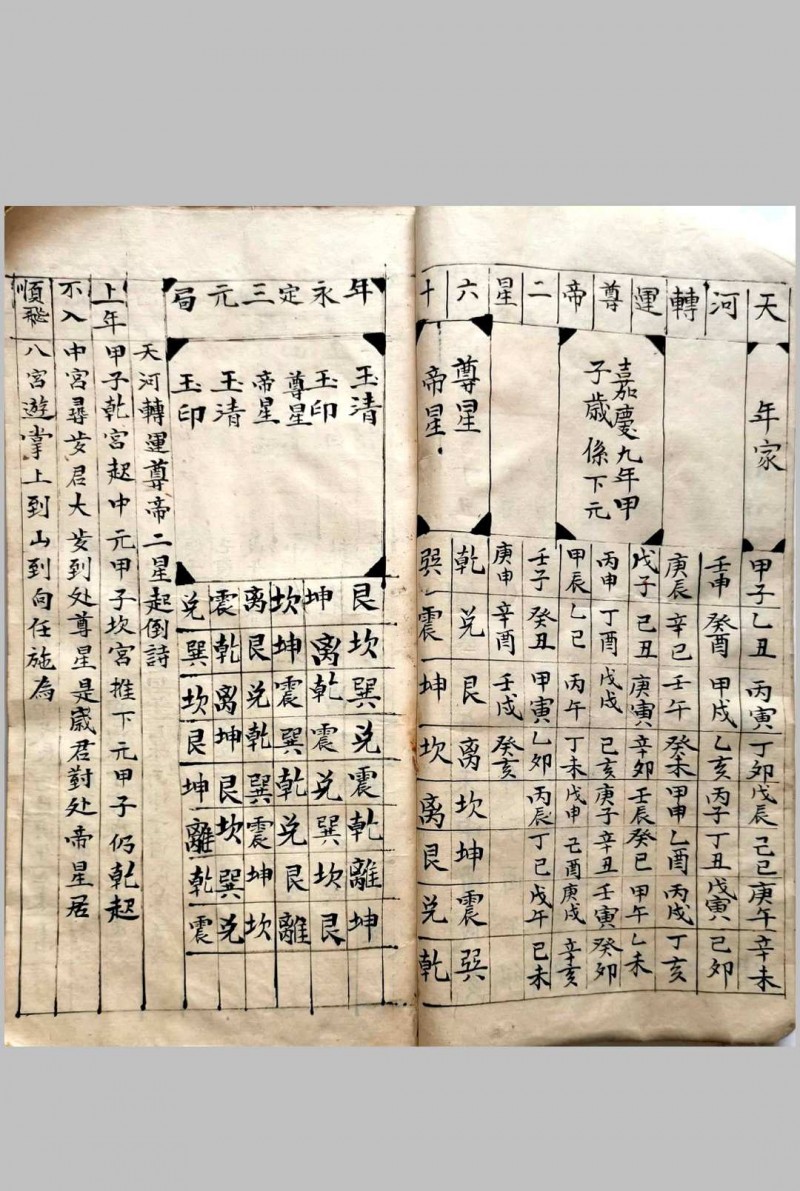 天河轉運尊帝二星六十
年家
嘉慶九年甲
子歲係下元
甲子乙丑丙寅丁卯戊辰己巳庚午辛未
壬申癸酉甲戌乙亥丙子丁丑戊寅己卯
庚辰辛巳壬午癸未甲申乙酉丙戌丁亥
戊子己丑庚寅辛卯壬辰癸巳甲午乙未
丙申丁酉戊戌己亥庚子辛丑壬寅癸卯
甲辰乙巳丙午丁未戊申己酉庚戌辛亥
壬子癸丑甲寅乙卯丙辰丁巳戊午己未
庚申辛酉壬戌癸亥
尊星乾兑艮离坎坤震巽
帝星巽震坤坎离艮兑乾
年永定三元局
玉清艮坎巽兑震乾離坤
玉印坤离乾震兑巽坎艮
尊星坎坤震巽乾兑艮離
帝星离艮兑乾巽震坤坎
玉清震乾离坤艮坎巽兑
玉印兑巽坎艮坤離乾震
天河轉運尊帝二星起倒詩
上年甲子乾宮起中元甲子坎宮推下元甲子仍乾起
不入中宮尋岁君大岁到处尊星是歲君對处帝星居
順飛八宮遊掌上到山到向任施為